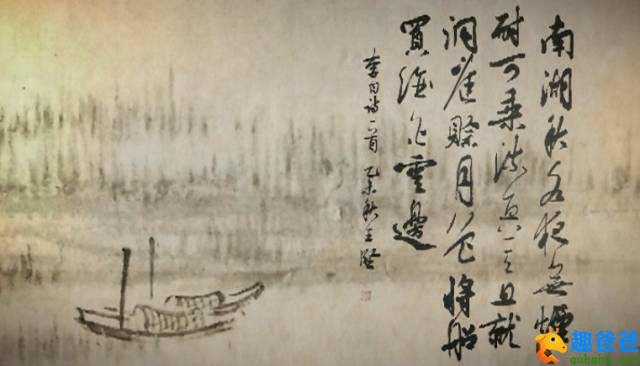 南湖秋水夜無煙
耐可乘流直上天且就
洞庭賒月色將船
買酒白雲邊
李白詩一首 乙未秋王
趣爸爸